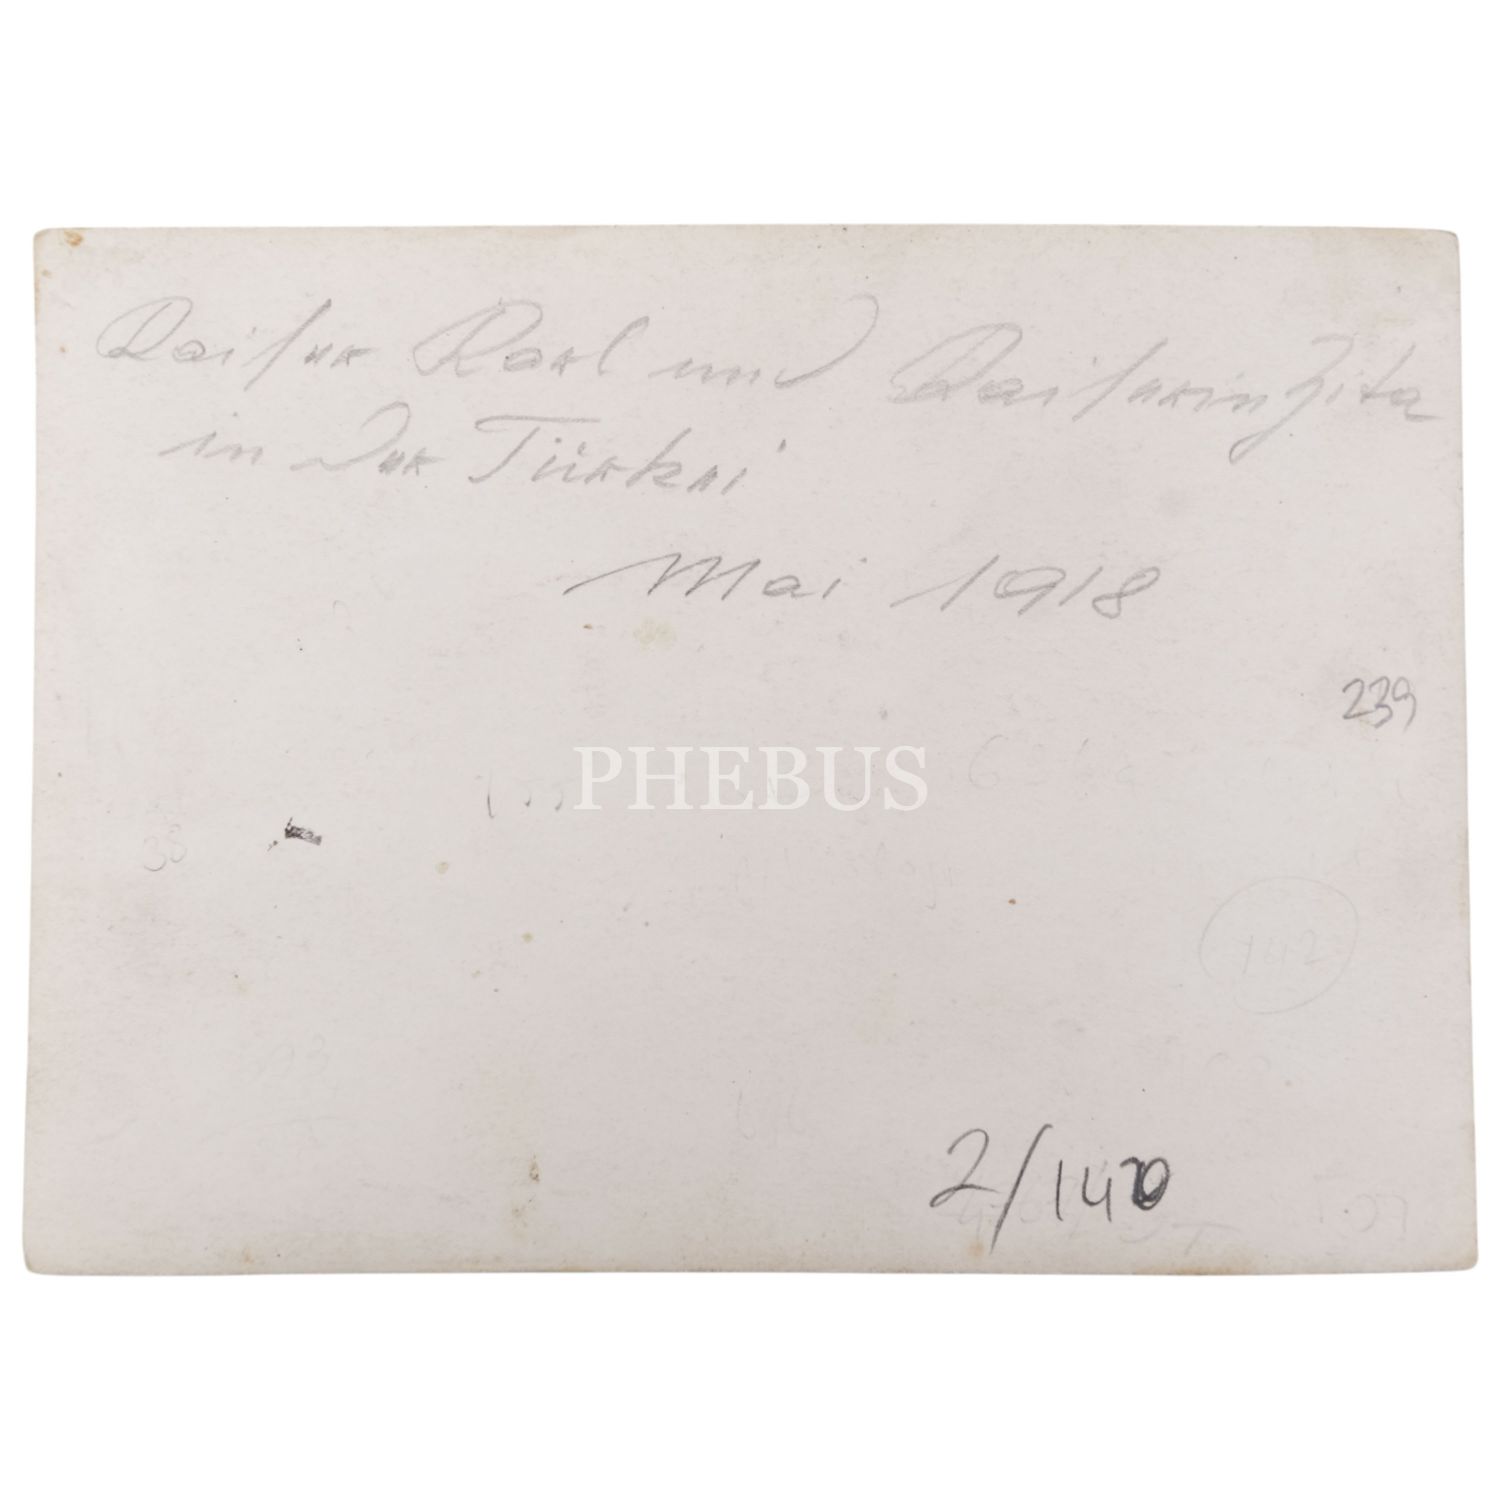 Kaiser Karl und Kaiserin Zita
in der Türkei
Mai 1918
239
PHEBUS
38
142
2/140